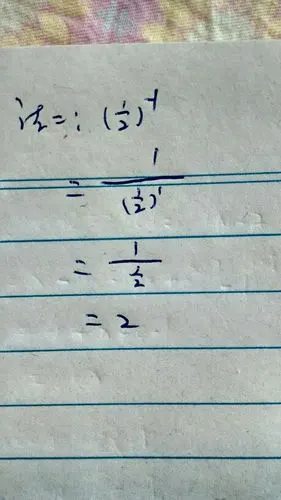 法二: (1/2)^-1
= 1/(1/2)^1
= 1/(1/2)
= 2